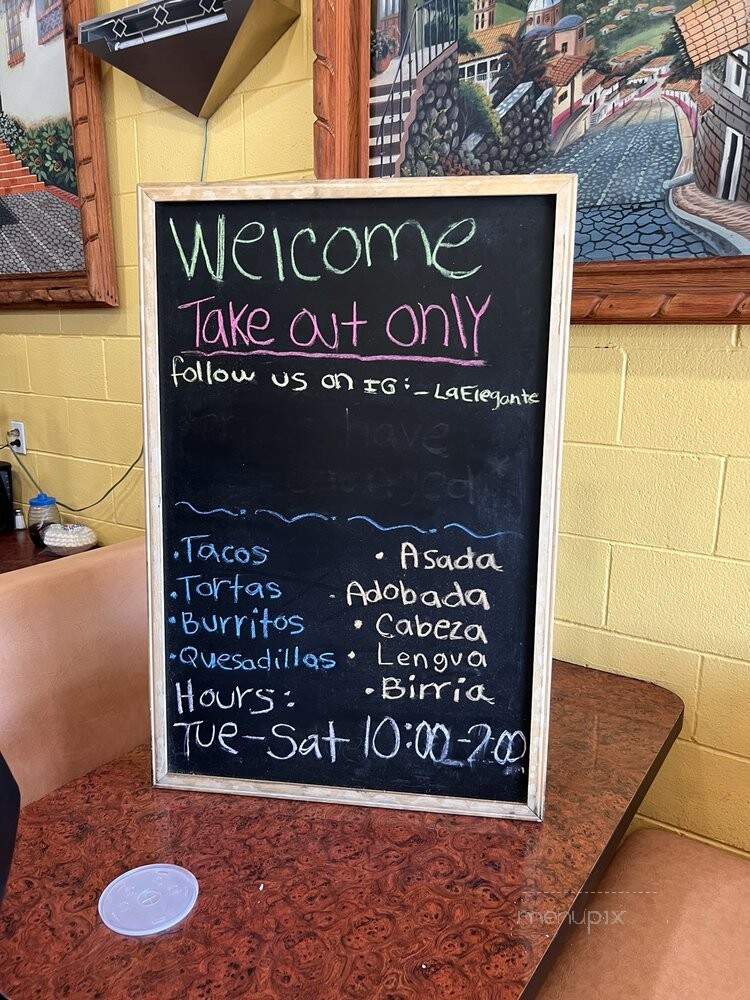 Welcome
Take out only
follow us on IG:_LaElegante
have
• Tacos
• Tortas
• Burritos
• Quesadillas
• Asada
• Adobada
• Cabeza
• Lengua
• Birria
Hours:
Tue-Sat 10:00-2:00
menupix